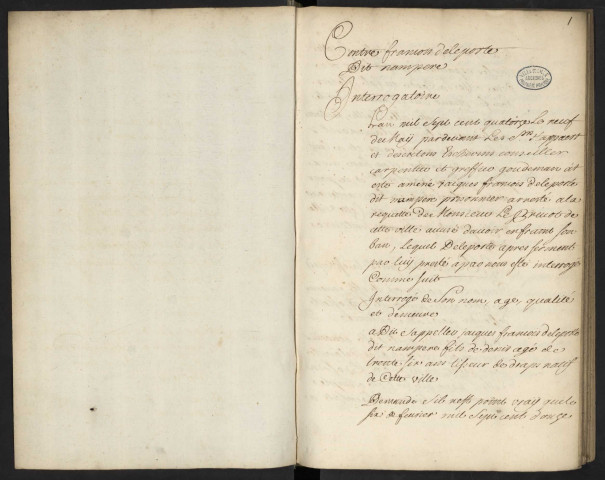 1
Contre francois deleporte
Dit nampere
Interrogatoire
Lan mil sept cent quatorze le neuf
de May pardevant Les
et echevins conseiller
carpentier et greffier gondeman at
este amené Jacques francois deleporte
dit nampere prisonnier arresté a la
requeste de Monsieur Le Prevost de
cette ville accusé davoir enfraint son
ban, Lequel Deleporte apres serment
par luy presté a par nous esté interrogé
Comme suit
Interrogé de son nom, age, qualité
et demeure
a Dit sappeller jacques francois deleporte
dit nampere fils de denis agé de
trente six ans tisseur de draps natif
de Cette ville
Demandé sil nest point vray que le
six de fevrier mil sept cent douze